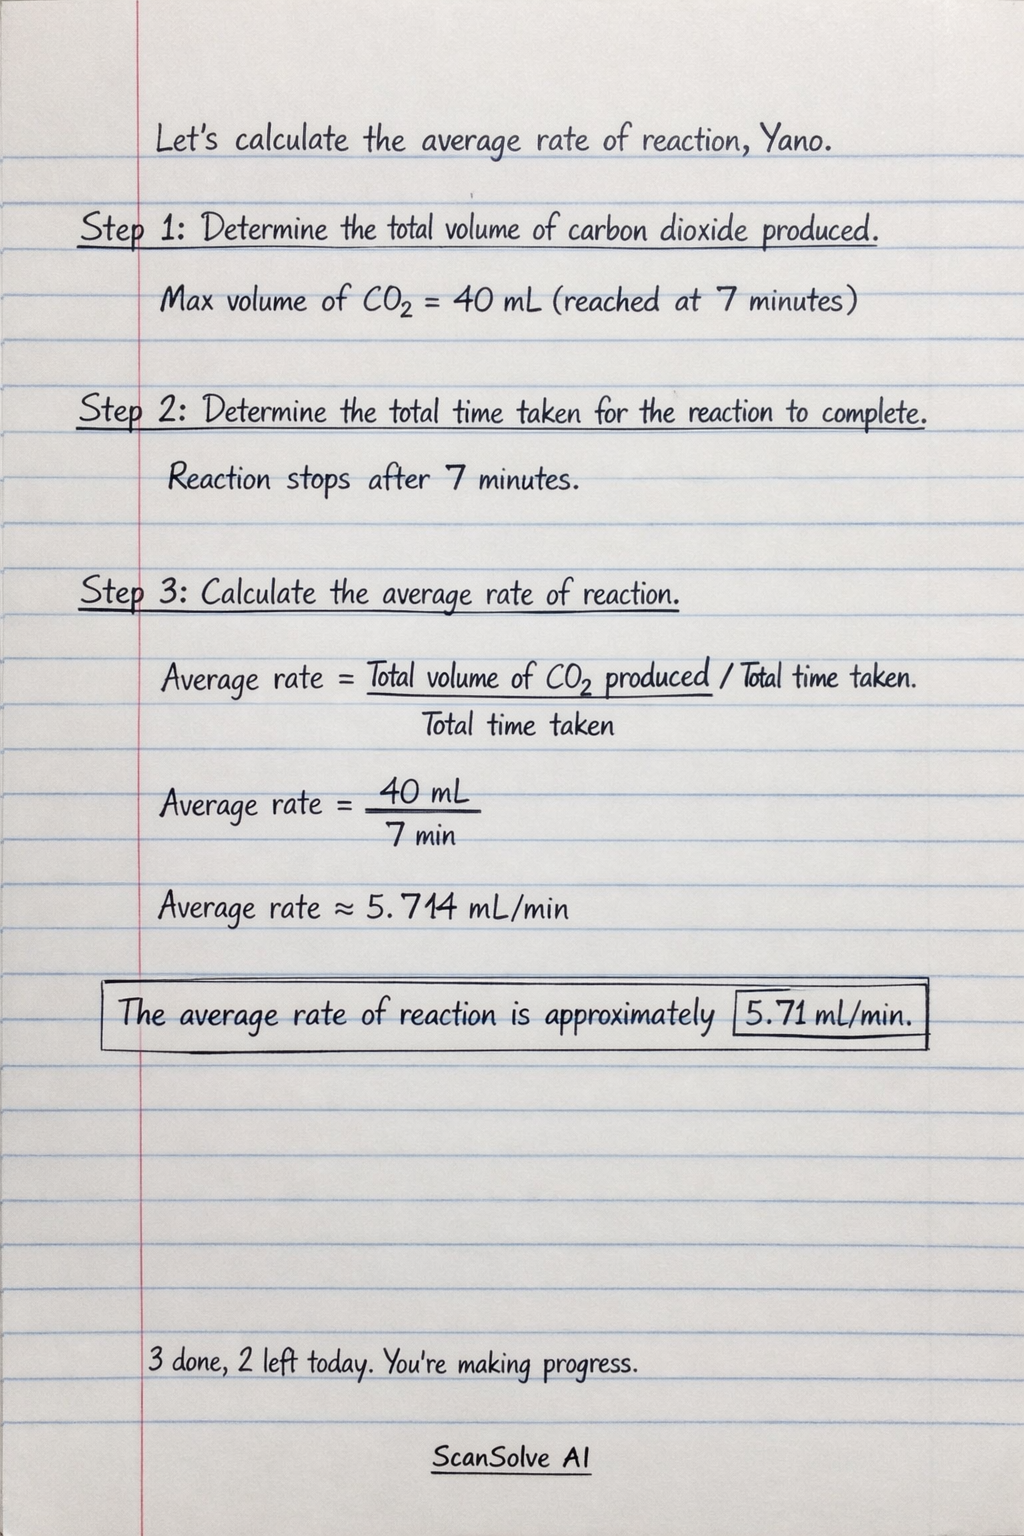 Let's calculate the average rate of reaction, Yano.
Step 1: Determine the total volume of carbon dioxide produced.
Max volume of CO₂ = 40 mL (reached at 7 minutes)
Step 2: Determine the total time taken for the reaction to complete.
Reaction stops after 7 minutes.
Step 3: Calculate the average rate of reaction.
Average rate = Total volume of CO₂ produced / Total time taken.
Total time taken
Average rate = 40 mL
7 min
Average rate ≈ 5.714 mL/min
The average rate of reaction is approximately 5.71 mL/min.
3 done, 2 left today. You're making progress.
ScanSolve AI